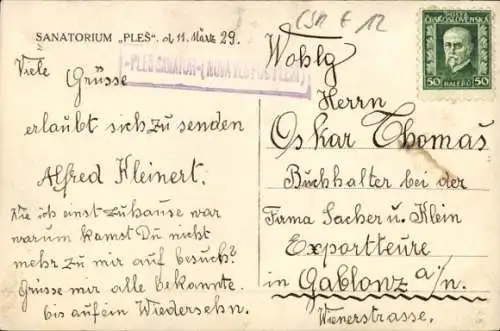 SANATORIUM „PLEŠ“. d 11. März 29.
Viele Grüsse
erlaubt sich zu senden
Alfred Kleinert.
Wie ich einst zuhause war
warum kamst Du nicht
mehr zu mir auf besuch?
Grüsse mir alle bekannte.
bis auf ein Wiedersehn.
"PLEŠ SANATOR"
ČSR E 12
ČESKOSLOVENSKÁ
50 HALÉŘŮ 50
Wohlg
Herrn
Oskar Thomas
Buchhalter bei der
Firma Sacher u. Klein
Exporteure
in Gablonz a/n.
Wienerstrasse.